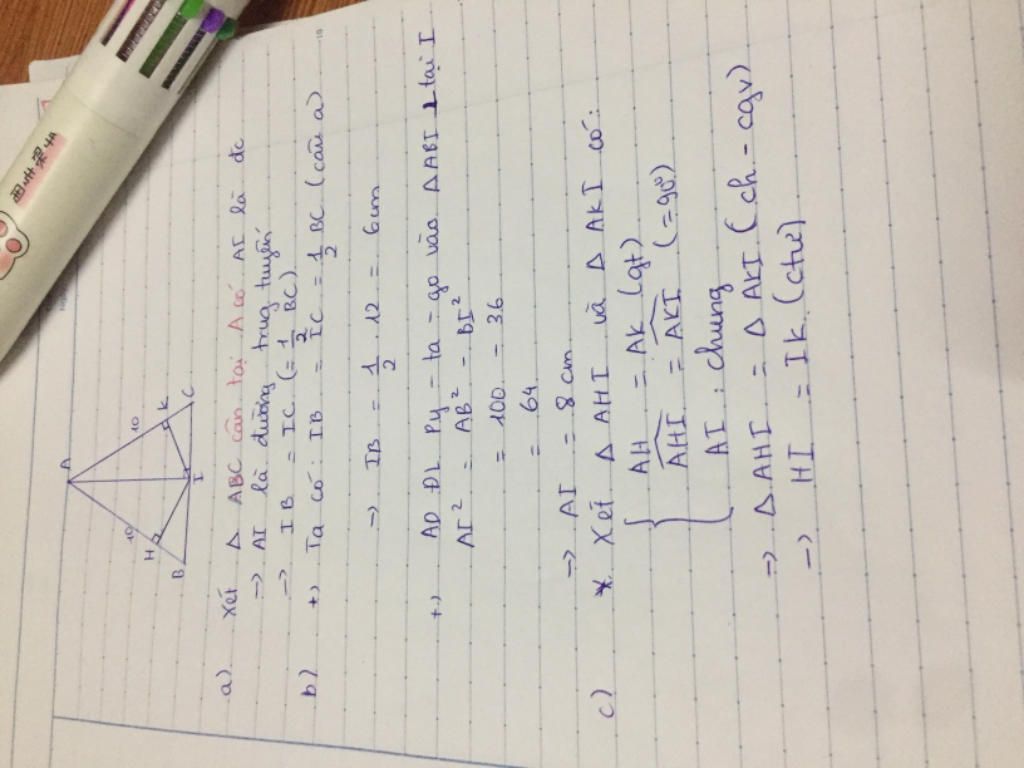 A
10
10
H
K
B
I
C
a) Xét Δ ABC cân tại A có AI là đc
→ AI là đường trug tuyến
→ IB = IC (= 1/2 BC)
b) +) Ta có: IB = IC = 1/2 BC (câu a)
→ IB = 1/2 . 12 = 6cm
+) AD ĐL Py - ta - go vào Δ ABI ⊥ tại I
AI² = AB² - BI²
= 100 - 36
= 64
→ AI = 8 cm
c) * Xét Δ AHI và Δ AKI có:
AH = AK (gt)
AHI = AKI (= 90°)
AI : chung
→ Δ AHI = Δ AKI (ch - cgv)
→ HI = IK (ctư)